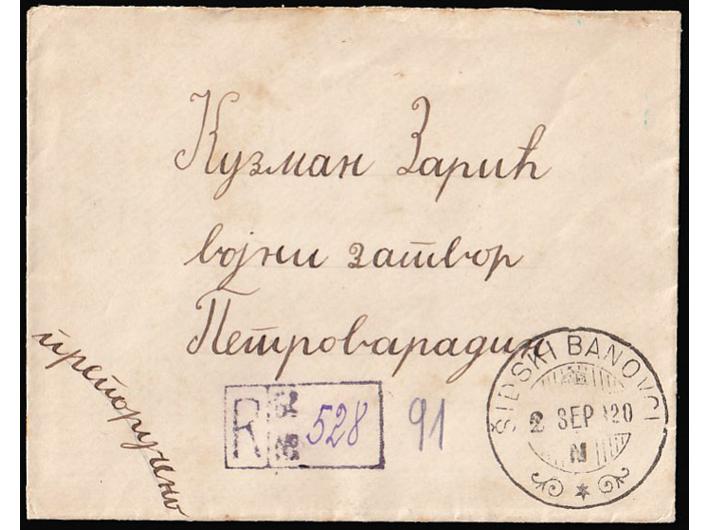 Кузман Зарић
војни затвор
Петроварадин
препоручено
R 528
91
ŠIDSKI BANOVCI
2 SEP 920